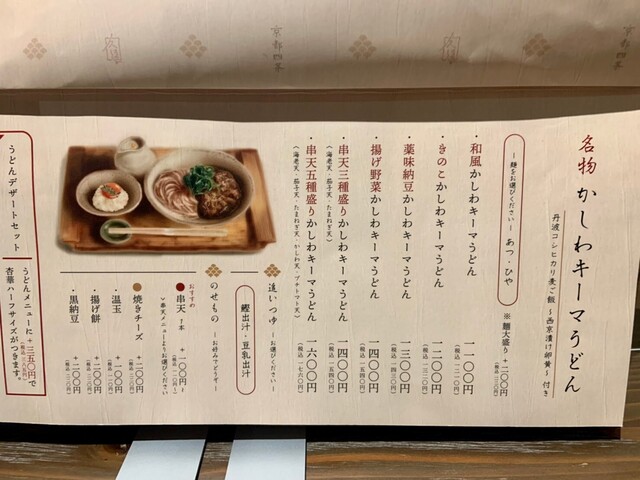 京都四条
名物 かしわキーマうどん
丹波コシヒカリ麦ご飯 〜西京漬け卵黄〜 付き
ー麺をお選びくださいー あつ・ひや
※麺大盛り+二〇〇円
(税込 二二〇円)
・和風かしわキーマうどん 一一〇〇円
(税込 一二一〇円)
・きのこかしわキーマうどん 一二〇〇円
(税込 一三二〇円)
・薬味納豆かしわキーマうどん 一三〇〇円
(税込 一四三〇円)
・揚げ野菜かしわキーマうどん 一四〇〇円
(税込 一五四〇円)
・串天三種盛りかしわキーマうどん 一四〇〇円
(海老天・茄子天・たまねぎ天) (税込 一五四〇円)
・串天五種盛りかしわキーマうどん 一六〇〇円
(海老天・茄子天・たまねぎ天・かしわ天・プチトマト天) (税込 一七六〇円)
追いつゆ ーお選びくださいー
鰹出汁・豆乳出汁
のせもの ーお好みでどうぞー
おすすめ
串天 1本 +一〇〇円〜
(税込 一一〇円〜)
>串天メニューよりお選びください
焼きチーズ +二〇〇円
(税込 二二〇円)
・温玉 +一〇〇円
(税込 一一〇円)
・揚げ餅 +二〇〇円
(税込 二二〇円)
・黒納豆 +二〇〇円
(税込 二二〇円)
うどんデザートセット
うどんメニューに+三五〇円で
(税込 三八五円)
杏華ハーフサイズがつきます。